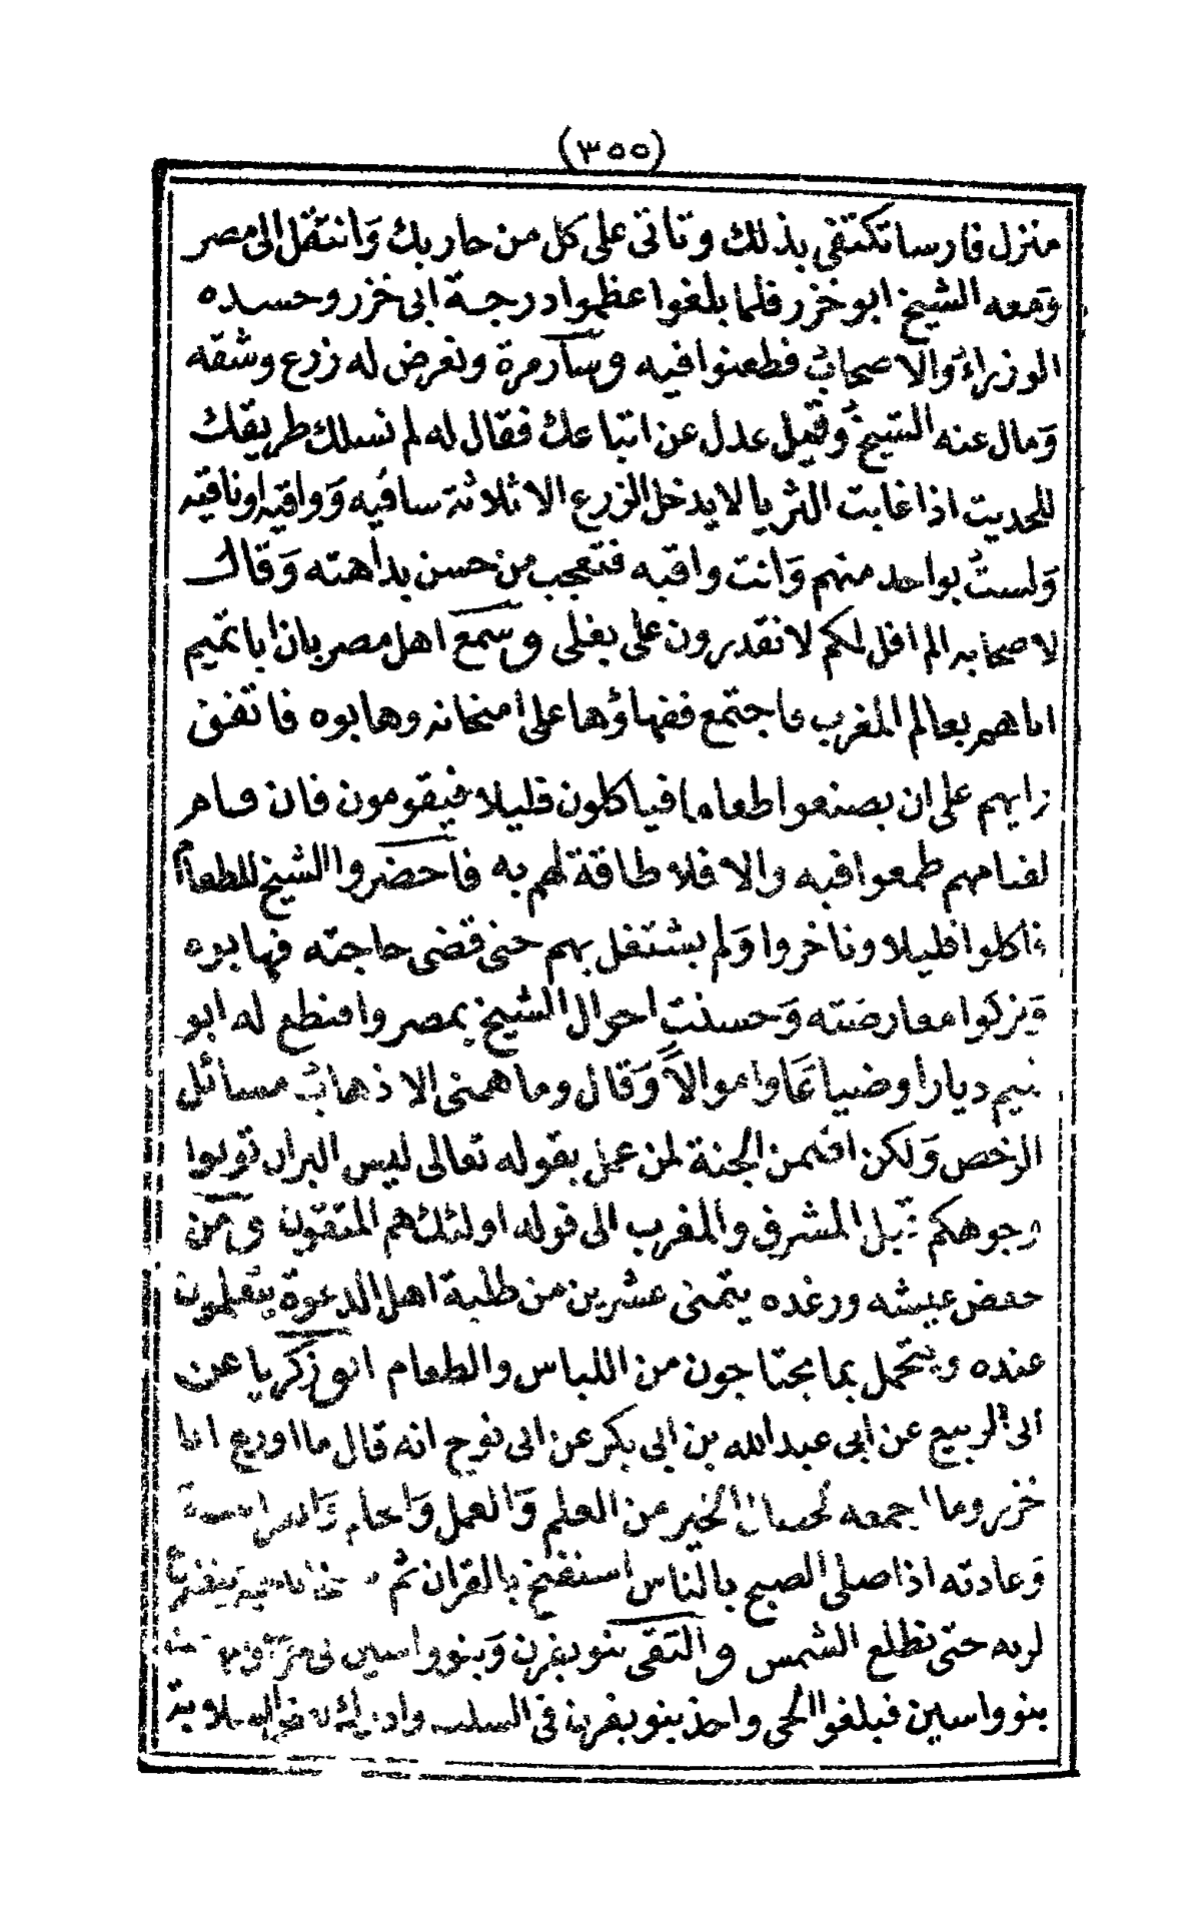 (٣٥٥)
منزل فارسا تكتفى بذلك وتاتى على كل من حاربك وَانتقل الى مصر
وَمعه الشيخ ابو خزر فلما بلغوا عظموا درجة ابى خزر وحسده
الوزراءُ وَالاصحابُ فطعنوا فيه وسار مرة وتعرض له زرع وشقه
وَمال عنه الشيخُ وَقيل عدل عن اتباعك فقال له لم تسلك طريقك
للحديث اذا غابت الثريا لا يدخل الزرع الا ثلاثة سافيه وَواقيه اوناقيه
وَلستُ بواحد منهم وَانت واقبه فتعجب من حسن بداهته وَقال
لاصحابه الم اقل لكم لا تقدرون على بغلى وسمع اهل مصر بان ابا تميم
اتاهم بعالم المغرب فاجتمع فقهاؤها على امتحانه وهابوه فاتفق
رايهم على ان يصنعوا طعاما فياكلون قليلا فيقومون فان قام
لقيامهم طمعوا فيه والا فلا طاقة لهم به فاحضروا الشيخ للطعام
فاكلوا قليلا وتاخروا وَلم يشتغل بهم حتى قضى حاجته فهابوه
وَتركوا معارضته وَحسنت احوال الشيخ بمصر واقتطع له ابو
تميم ديارا وضياعًا واموالاً وَقال وما همنى الا ذهابُ مسائل
الرخص وَلكن اقمن الجنة لمن عمل بقوله تعالى ليس البر ان تولوا
وجوهكم قبل المشرق والمغرب الى قوله اولئك هم المتقون ومن
خفض عيشه ورغده يتمنى عشرين من طلبة اهل الدعوة يتعلمون
عنده ويتحمل بما يحتاجون من اللباس والطعام ابو زكريا عن
ابى الربيع عن ابى عبد الله بن ابى بكر عن ابى نوح انه قال ما اورع ابا
خزر وما اجمعه لخصال الخير من العلم وَالعمل وَاحلم
وَعادته اذا صلى الصبح بالناس استفتح بالقران ثم
لربه حتى تطلع الشمس والتقى بنو يفرن وَبنو واسين فى
بنو واسين فبلغوا الحى واخذ بنو يفرن فى السلب